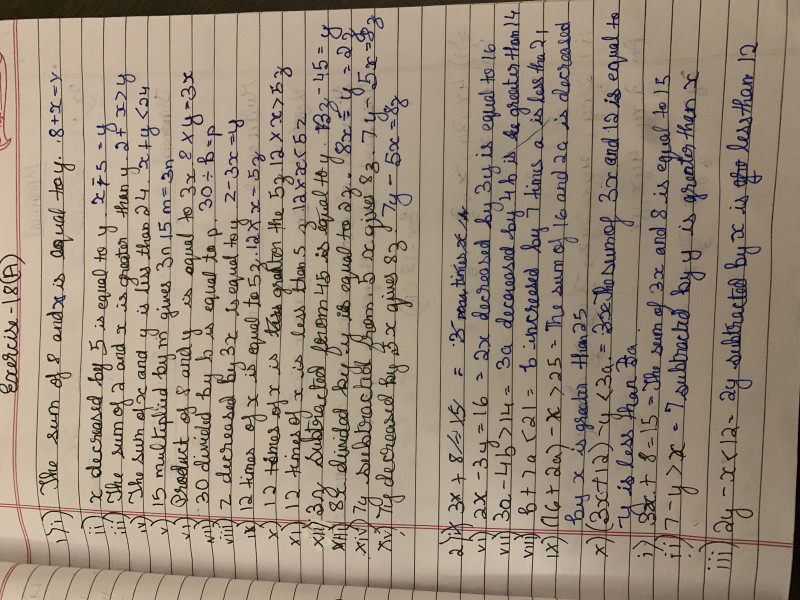 Exercise - 18(A)
1) i) The sum of 8 and x is equal to y. 8+x=y
ii) x decreased by 5 is equal to y x-5=y
iii) The sum of 2 and x is greater than y 2+x>y
iv) The sum of x and y is less than 24. x+y<24
v) 15 multiplied by m gives 3n 15m=3n
vi) Product of 8 and y is equal to 3x 8×y=3x
vii) 30 divided by b is equal to p. 30÷b=p
viii) z decreased by 3x is equal to y z-3x=y
ix) 12 times of x is equal to 5z. 12×x=5z
x) 12 times of x is greater the 5z 12×x>5z
xi) 12 times of x is less than 5z 12×x<5z
xii) 3z subtracted from 45 is equal to y. 3z-45=y
xiii) 8x divided by y is equal to 2z. 8x÷y=2z
xiv) 7y subtracted from 5x gives 8z. 7y-5x=8z
xv) 7y decreased by 5x gives 8z 7y-5x=8z
2) i) 3x+8=15 = 3 times x
vi) 2x-3y=16 = 2x decreased by 3y is equal to 16
vii) 3a-4b>14 = 3a decreased by 4b is greater than 14
viii) b+7a<21 = b increased by 7 times a is less tha 21
ix) (16+2a)-x>25 = The sum of 16 and 2a is decreased
by x is greater than 25
x) (3x+12)-y<3a = The sum of 3x and 12 is equal to
y is less than 3a
i) 3x+8=15 = The sum of 3x and 8 is equal to 15
ii) 7-y>x = 7 subtracted by y is greater than x
iii) 2y-x<12 = 2y subtracted by x is less than 12